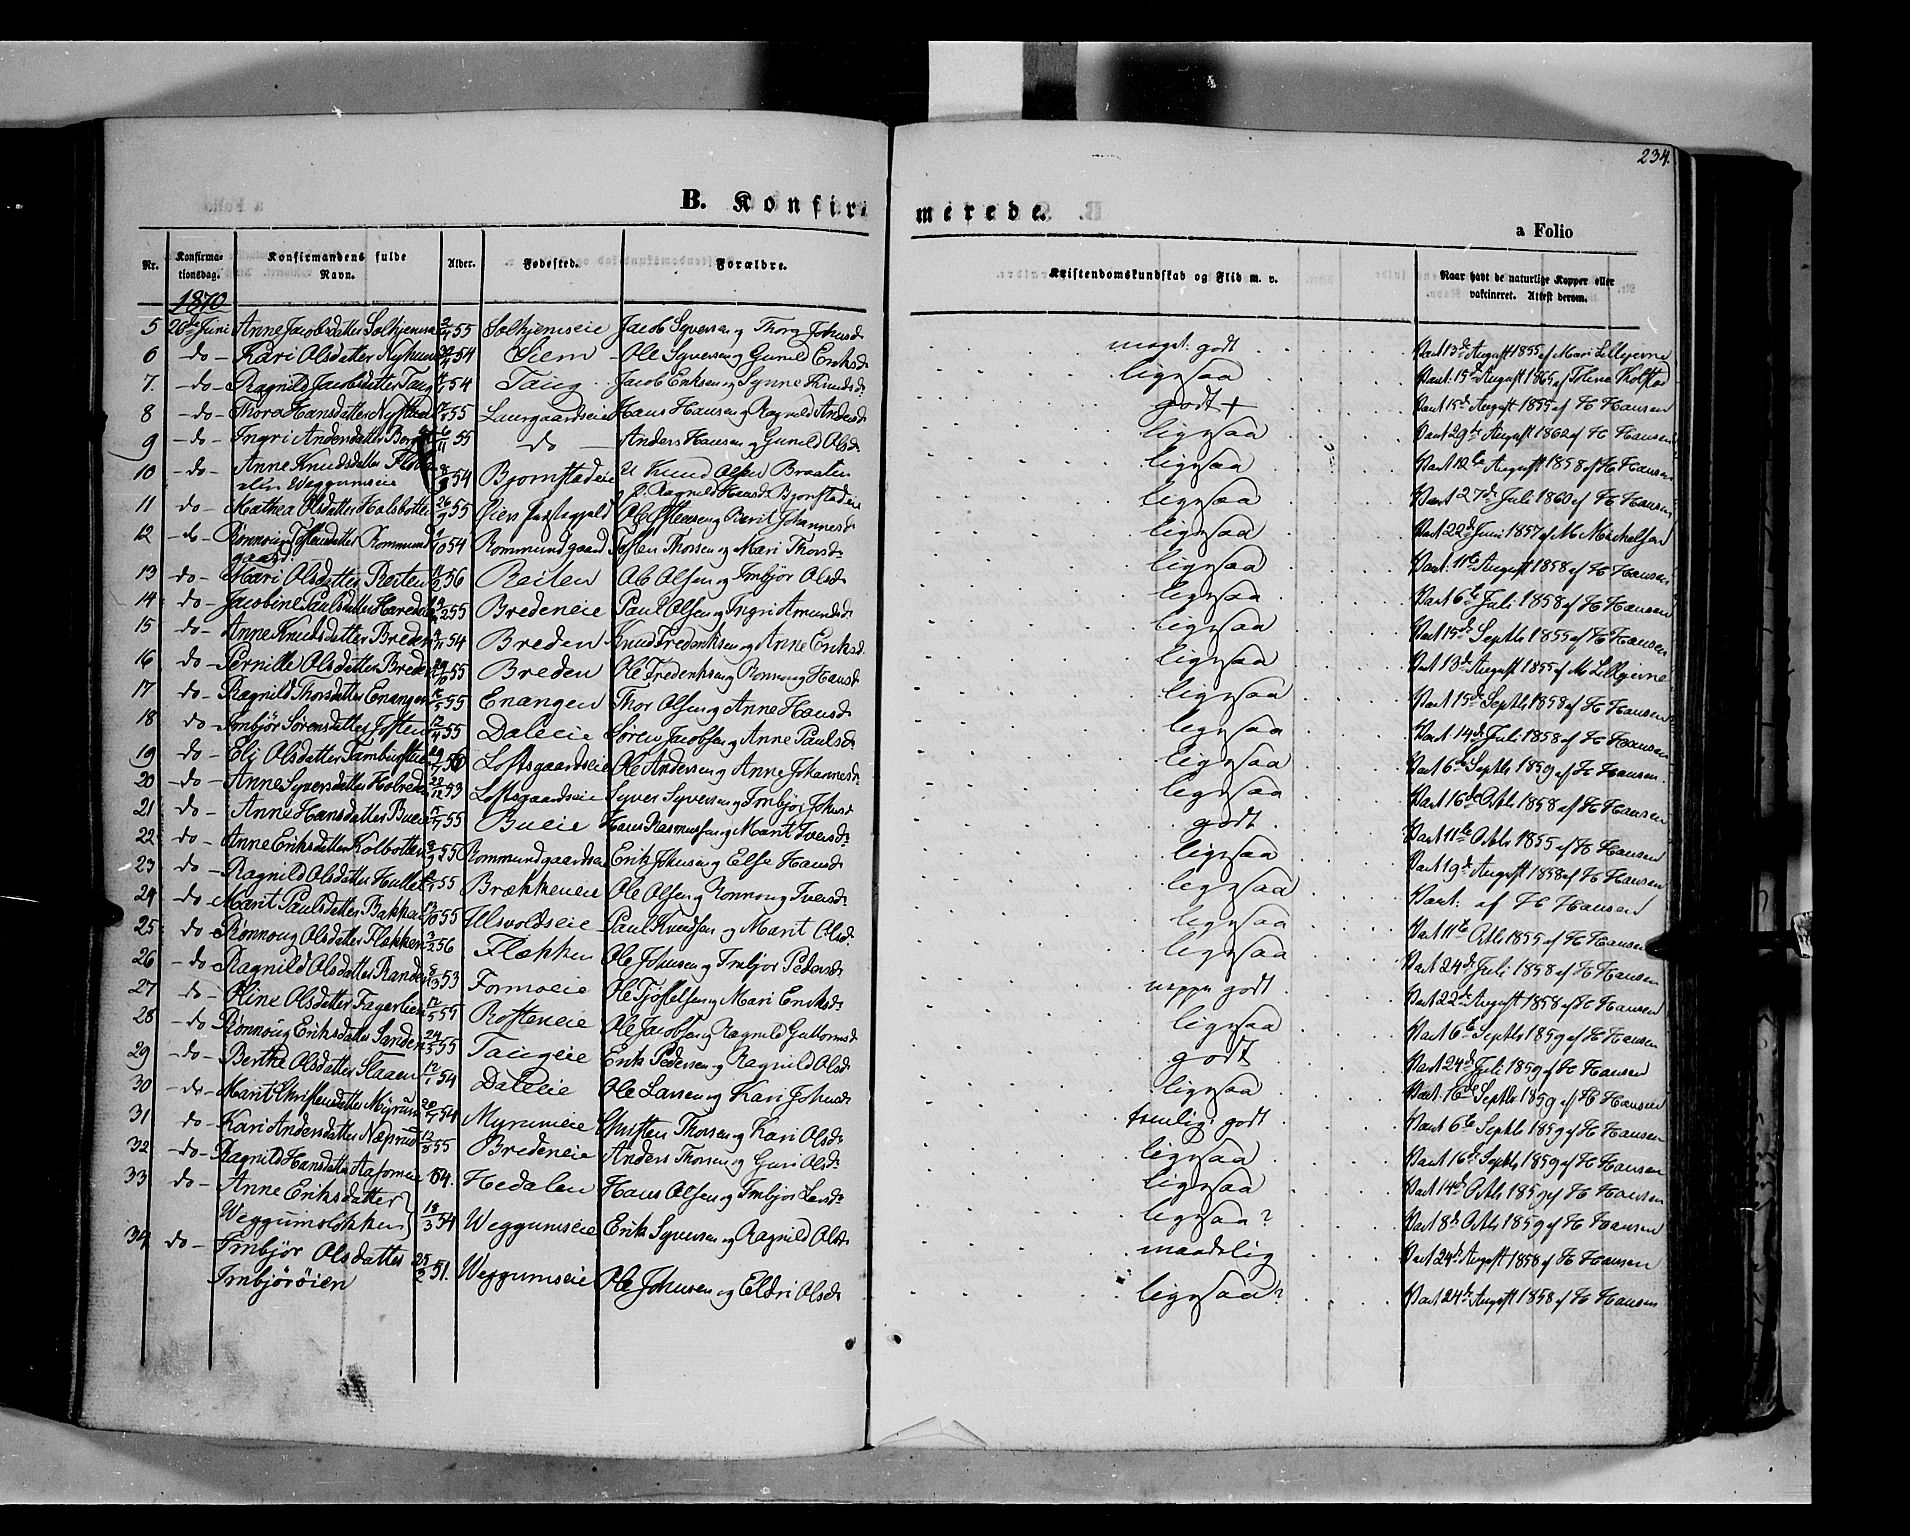 234.
a Folio
B. Konfirmerede.
Nr. Konfirmationsdag. Konfirmandens fulde Navn. Alder. Fødested. Forældre. Kristendomskundskab og Flid m. v. Naar havt de naturlige Kopper eller vakcineret. Attest derom.
1870
5 26de Juni Anne Jacobsdatter Solhjemsei 55 Solhjemseie Jacob Syversen og Thorg Johnsd: meget godt Vact 13de August 1855 af Mari Lillejevne
6 -do- Kari Olsdatter 54 Siem Ole Syversen og Gunild Eriksd: ligesaa
7. -do- Ragnild Jacobsdatter Taug 54 Taug Jacob Eriksen og Synne Knudsd: godt + Vact: 15de August 1865 af
8 -do- Thora Hansdatter 55 Laurgaardseie Hans Hansen og Ragnild Andersd: ligesaa Vact 15de August 1855 af H Hansen
9 -do- Ingri Andersdatter 6/11 55 do Anders Hansen og Gunild Olsd: ligesaa Vact 29de August 1862 af H Hansen
10 -do- Anne Knudsdatter 54 Bjornstadeie U Knud Olsen Braaten ligesaa Vact 12te August 1858 af H Hansen
eller Weggumseie P. Ragnild Hansd: Bjornstadeie
11 do- Mathea Olsdatter Holsbotten 26/9 55 Ole Steensen og Berit Johannesd: ligesaa Vact 27de Juli 1860 af H Hansen
12 -do- Rønnoug Tostensdatter Rommund 54 Rommundgaard Tosten Thorsen og Mari Thorsd: ligesaa Vact 22de Juni 1857 af M Michelsen
gaard.
13 do- Mari Olsdatter Reiten 56 Reiten Ole Olsen og Imbjør Olsd: ligesaa Vact: 11te August 1858 af H Hansen
14 do- Jacobine Paulsdatter 55 Bredeneie Paul Olsen og Ingri Amundsd: ligesaa Vact 6te Juli 1858 af H Hansen
15 do- Anne Knudsdatter Breden 54 Breden Knud Frederiksen og Anne Eriksd: ligesaa Vact 15de Septb 1855 af H Hansen
16 do- Pernille Olsdatter Breden 55 Breden Ole Frederiksen og Ronnoug Hansd: ligesaa Vact 13de August 1855 af M Lillejevne
17 do- Ragnild Thorsdatter Enangen 55 Enangen Thor Olsen og Anne Hansd: ligesaa Vact 15de Septb 1858 af H Hansen
18 do- Imbjør Sørensdatter 12/4 55 Daleeie Søren Jacobsen og Anne Paulsd: ligesaa Vact 14de Juli 1858 af H Hansen
19 -do- Eli Olsdatter 56 Loftsgaardseie Ole Andersen og Anne Johannesd: ligesaa Vact 6te Septb 1859 af H Hansen
20 -do- Anne Syversdatter 22/12 53 Loftsgaardseie Syver Syversen og Imbjør Johnsd: godt Vact 16de Octb 1858 af H Hansen
21 do- Anne Hansdatter Bueie 55 Bueie Hans Rasmussen og Marit Iversd: ligesaa Vact 11te Octb 1855 af H Hansen
22 -do- Anne Eriksdatter Kolbotten 55 Rommundgaardseie Erik Johnsen og Else Hansd: ligesaa Vact 19de August 1858 af H Hansen
23 do- Ragnild Olsdatter Hullet 55 Brækkeneie Ole Olsen og Ronnoug Iversd: ligesaa Vact. af H Hansen
24 do- Marit Paulsdatter Bakken 13/10 55 Ulsvoldseie Paul Knudsen og Marit Olsd: ligesaa Vact 11te Octb 1855 af H Hansen
25 do Rønnoug Olsdatter Flækken 3/2 56 Flækken Ole Johnsen og Imbjør Pedersd: neppe godt Vact 24de Juli 1858 af H Hansen
26 -do Ragnild Olsdatter Randen 53 Formoeie Ole Tjostelsen og Mari Eriksd: ligesaa Vact 22de August 1858 af H Hansen
27 do- Oline Olsdatter Fagerlien 12/5 Rosteneie Ole Jacobsen og Ragnild Guttormsd: godt Vact 6te Septb 1859 af H Hansen
28 -do Rønnoug Eriksdatter Sanden 24/5 55 Taugeie Erik Pedersen og Ragnild Olsd: ligesaa Vact 24de Juli 1859 af H Hansen
29 -do- Berthe Olsdatter Slaaen 12/1 54 Daleeie Ole Larsen og Kari Johnsd: temlig godt Vact. 16de Septb 1859 af H Hansen
30 -do- Marit Christensdatter Myrum 20/7 54 Myrumeie Christen Thorsen og Kari Olsd: ligesaa Vact 6te Septb 1859 af H Hansen
31 do- Kari Andersdatter Næprud 12/8 55 Bredeneie Anders Thorsen og Guri Olsd: ligesaa Vact 16de Septb 1859 af H Hansen
32 -do- Ragnild Hansdatter 54. Hedalen Hans Olsen og Imbjør Larsd: ligesaa? Vact 14de Octb 1859 af H Hansen
33 do- Anne Eriksdatter
Weggumsløkken 18/3 54 Weggumseie Erik Syversen og Ragnild Olsd: maadelig Vact 8de Octb 1859 af H Hansen
34 do- Imbjør Olsdatter 25/2 51. Weggumseie Ole Johnsen og Eldri Olsd: ligesaa? Vact 24de August 1858 af H Hansen
Imbjørøien Vact 24de August 1858 af H Hansen